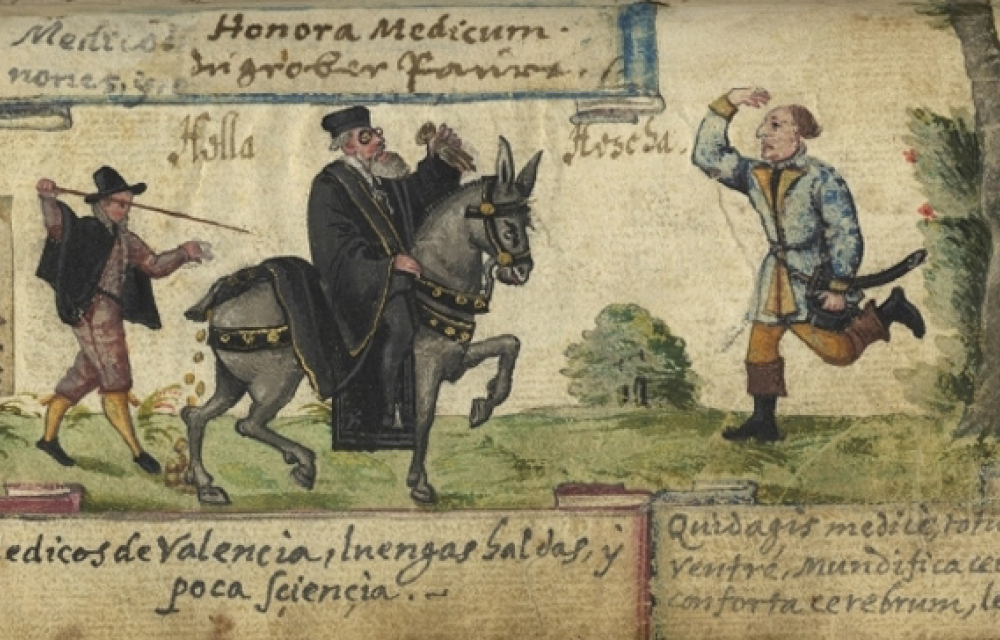 Honora Medicum.
grober
Holla
Hoscha.
edicos de Valençia, luengas haldas, y
poca sçiençia.
Quid agis medicè, totu
ventré, Mundifica
conforta cerebrum,